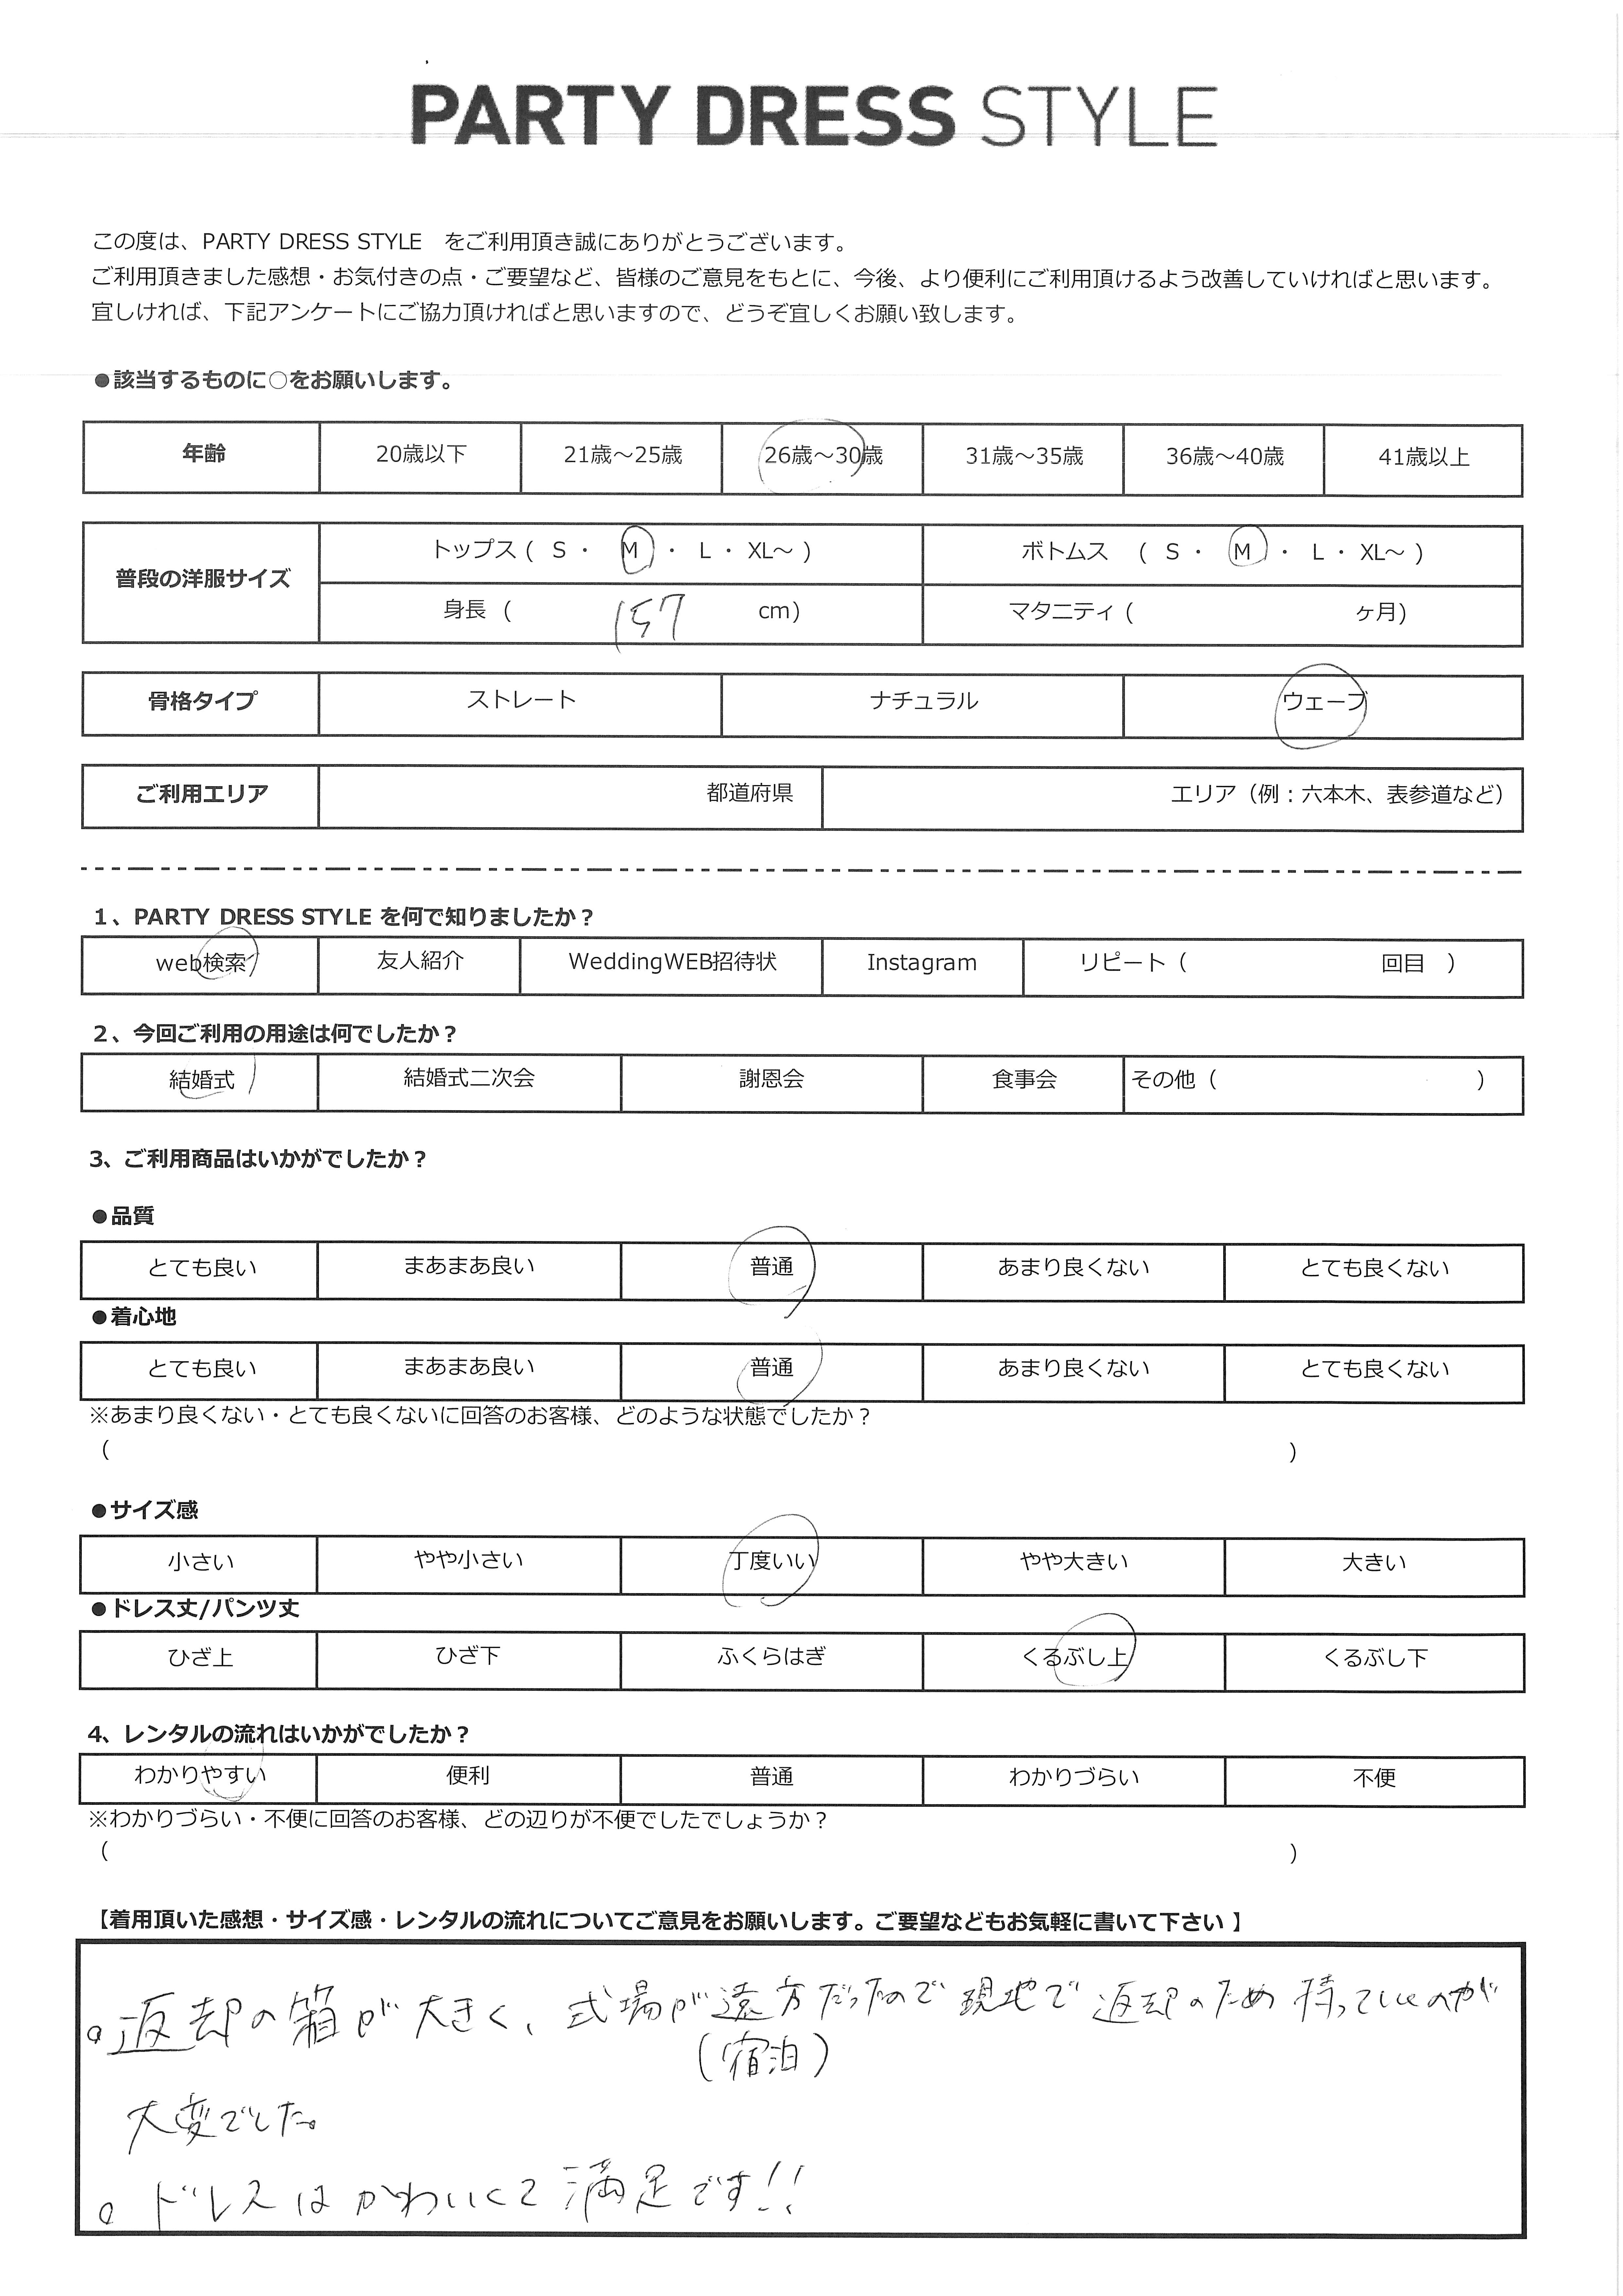 PARTY DRESS STYLE
この度は、PARTY DRESS STYLE　をご利用頂き誠にありがとうございます。
ご利用頂きました感想・お気付きの点・ご要望など、皆様のご意見をもとに、今後、より便利にご利用頂けるよう改善していければと思います。
宜しければ、下記アンケートにご協力頂ければと思いますので、どうぞ宜しくお願い致します。
●該当するものに○をお願いします。
年齢 20歳以下 21歳～25歳 26歳～30歳 31歳～35歳 36歳～40歳 41歳以上
普段の洋服サイズ
トップス ( S ・ M ・ L ・ XL～ ) ボトムス ( S ・ M ・ L ・ XL～ )
身長 ( 157 cm) マタニティ ( ヶ月)
骨格タイプ ストレート ナチュラル ウェーブ
ご利用エリア 都道府県 エリア（例：六本木、表参道など）
1、PARTY DRESS STYLE を何で知りましたか？
web検索 友人紹介 WeddingWEB招待状 Instagram リピート（ 回目 ）
2、今回ご利用の用途は何でしたか？
結婚式 結婚式二次会 謝恩会 食事会 その他（ ）
3、ご利用商品はいかがでしたか？
●品質
とても良い まあまあ良い 普通 あまり良くない とても良くない
●着心地
とても良い まあまあ良い 普通 あまり良くない とても良くない
※あまり良くない・とても良くないに回答のお客様、どのような状態でしたか？
（ ）
●サイズ感
小さい やや小さい 丁度いい やや大きい 大きい
●ドレス丈/パンツ丈
ひざ上 ひざ下 ふくらはぎ くるぶし上 くるぶし下
4、レンタルの流れはいかがでしたか？
わかりやすい 便利 普通 わかりづらい 不便
※わかりづらい・不便に回答のお客様、どの辺りが不便でしたでしょうか？
（ ）
【着用頂いた感想・サイズ感・レンタルの流れについてご意見をお願いします。ご要望などもお気軽に書いて下さい 】
。返却の箱が大きく、式場が遠方だったので現地で返却のため持っていくのが
(宿泊)
大変でした。
。ドレスはかわいくて満足です!!